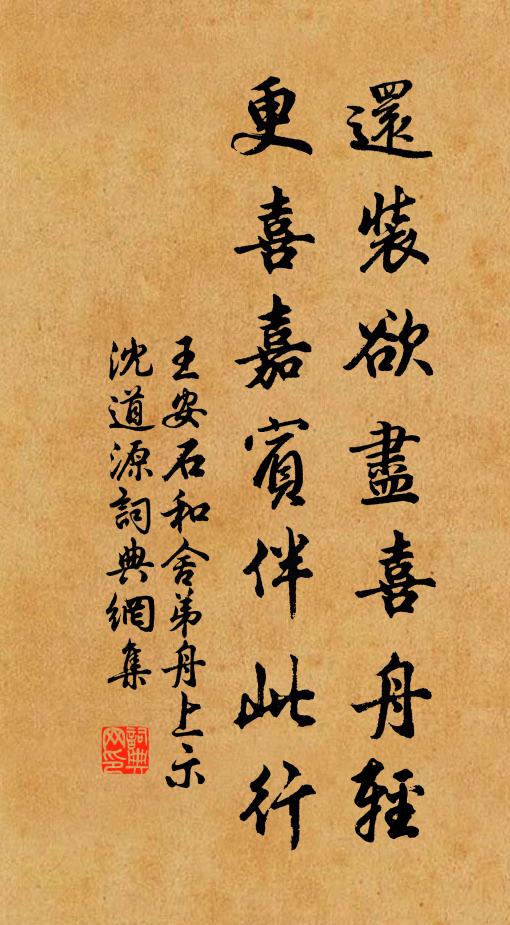 還裝欲盡喜舟輕
更喜嘉賓伴此行
王安石和舍弟舟上示
沈道源詞典網集
詞典網印